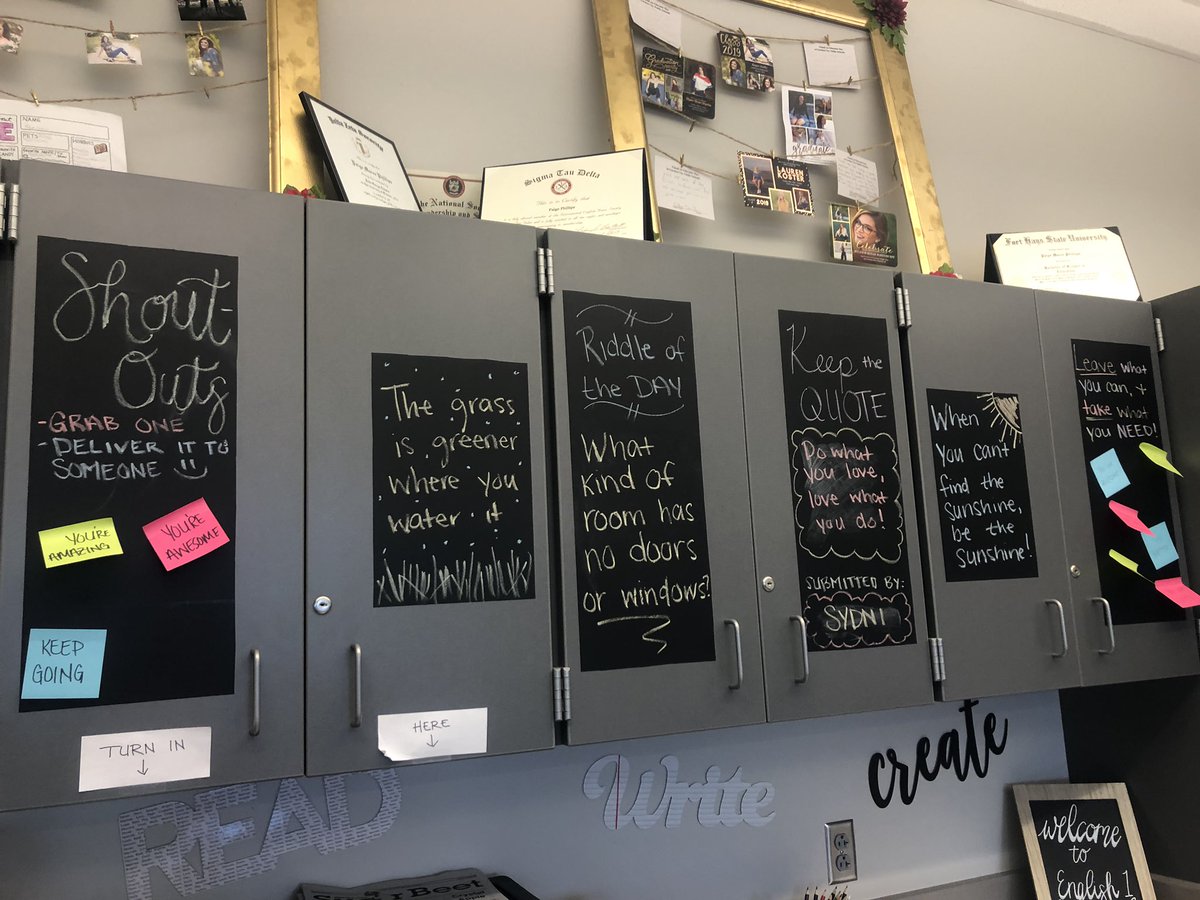 NAME
PETS
Sigma Tau Delta
This is to Certify that
Paige Phillips
The National So
Fort Hays State University
Class
2019
graduate
LAUREN
KOSTER
2018
Celebrate
Shout-
Outs
- GRAB ONE
- DELIVER IT TO
SOMEONE
YOU'RE
AMAZING
YOU'RE
AWESOME
KEEP
GOING
The grass
is greener
where you
water it
Riddle of
the DAY
What
kind of
room has
no doors
or windows?
Keep the
QUOTE
Do what
you love,
love what
you do!
SUBMITTED BY:
SYDNI
When
you can't
find the
sunshine,
be the
sunshine!
Leave what
you can, +
take what
you NEED!
TURN IN
HERE
READ
Write
create
Beet
welcome
to
English 1